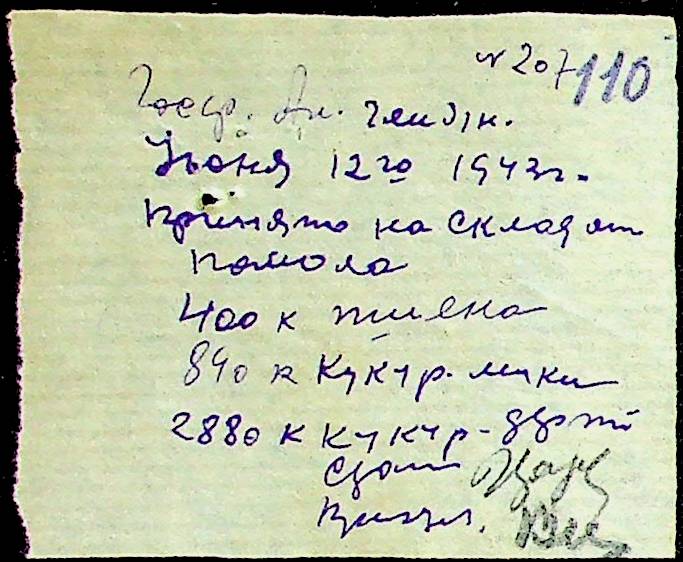 № 207 110
Госуд. Ак.
Июня 12го 1943г.
Принято на склад от
помола
400 к пшена
840 к кукур. муки
2880 к кукур-дерть
Сдал
Принял.